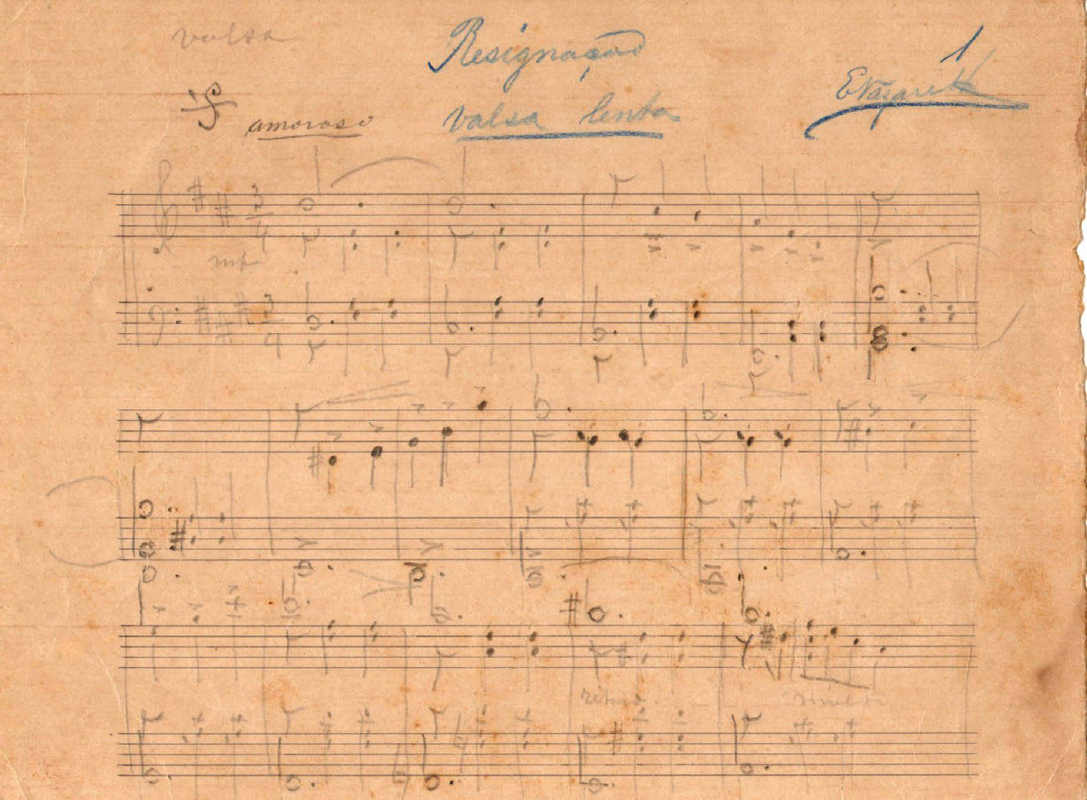 valsa
Resignação
1
amoroso
valsa lenta
ENazareth
3
4
mf
3
4